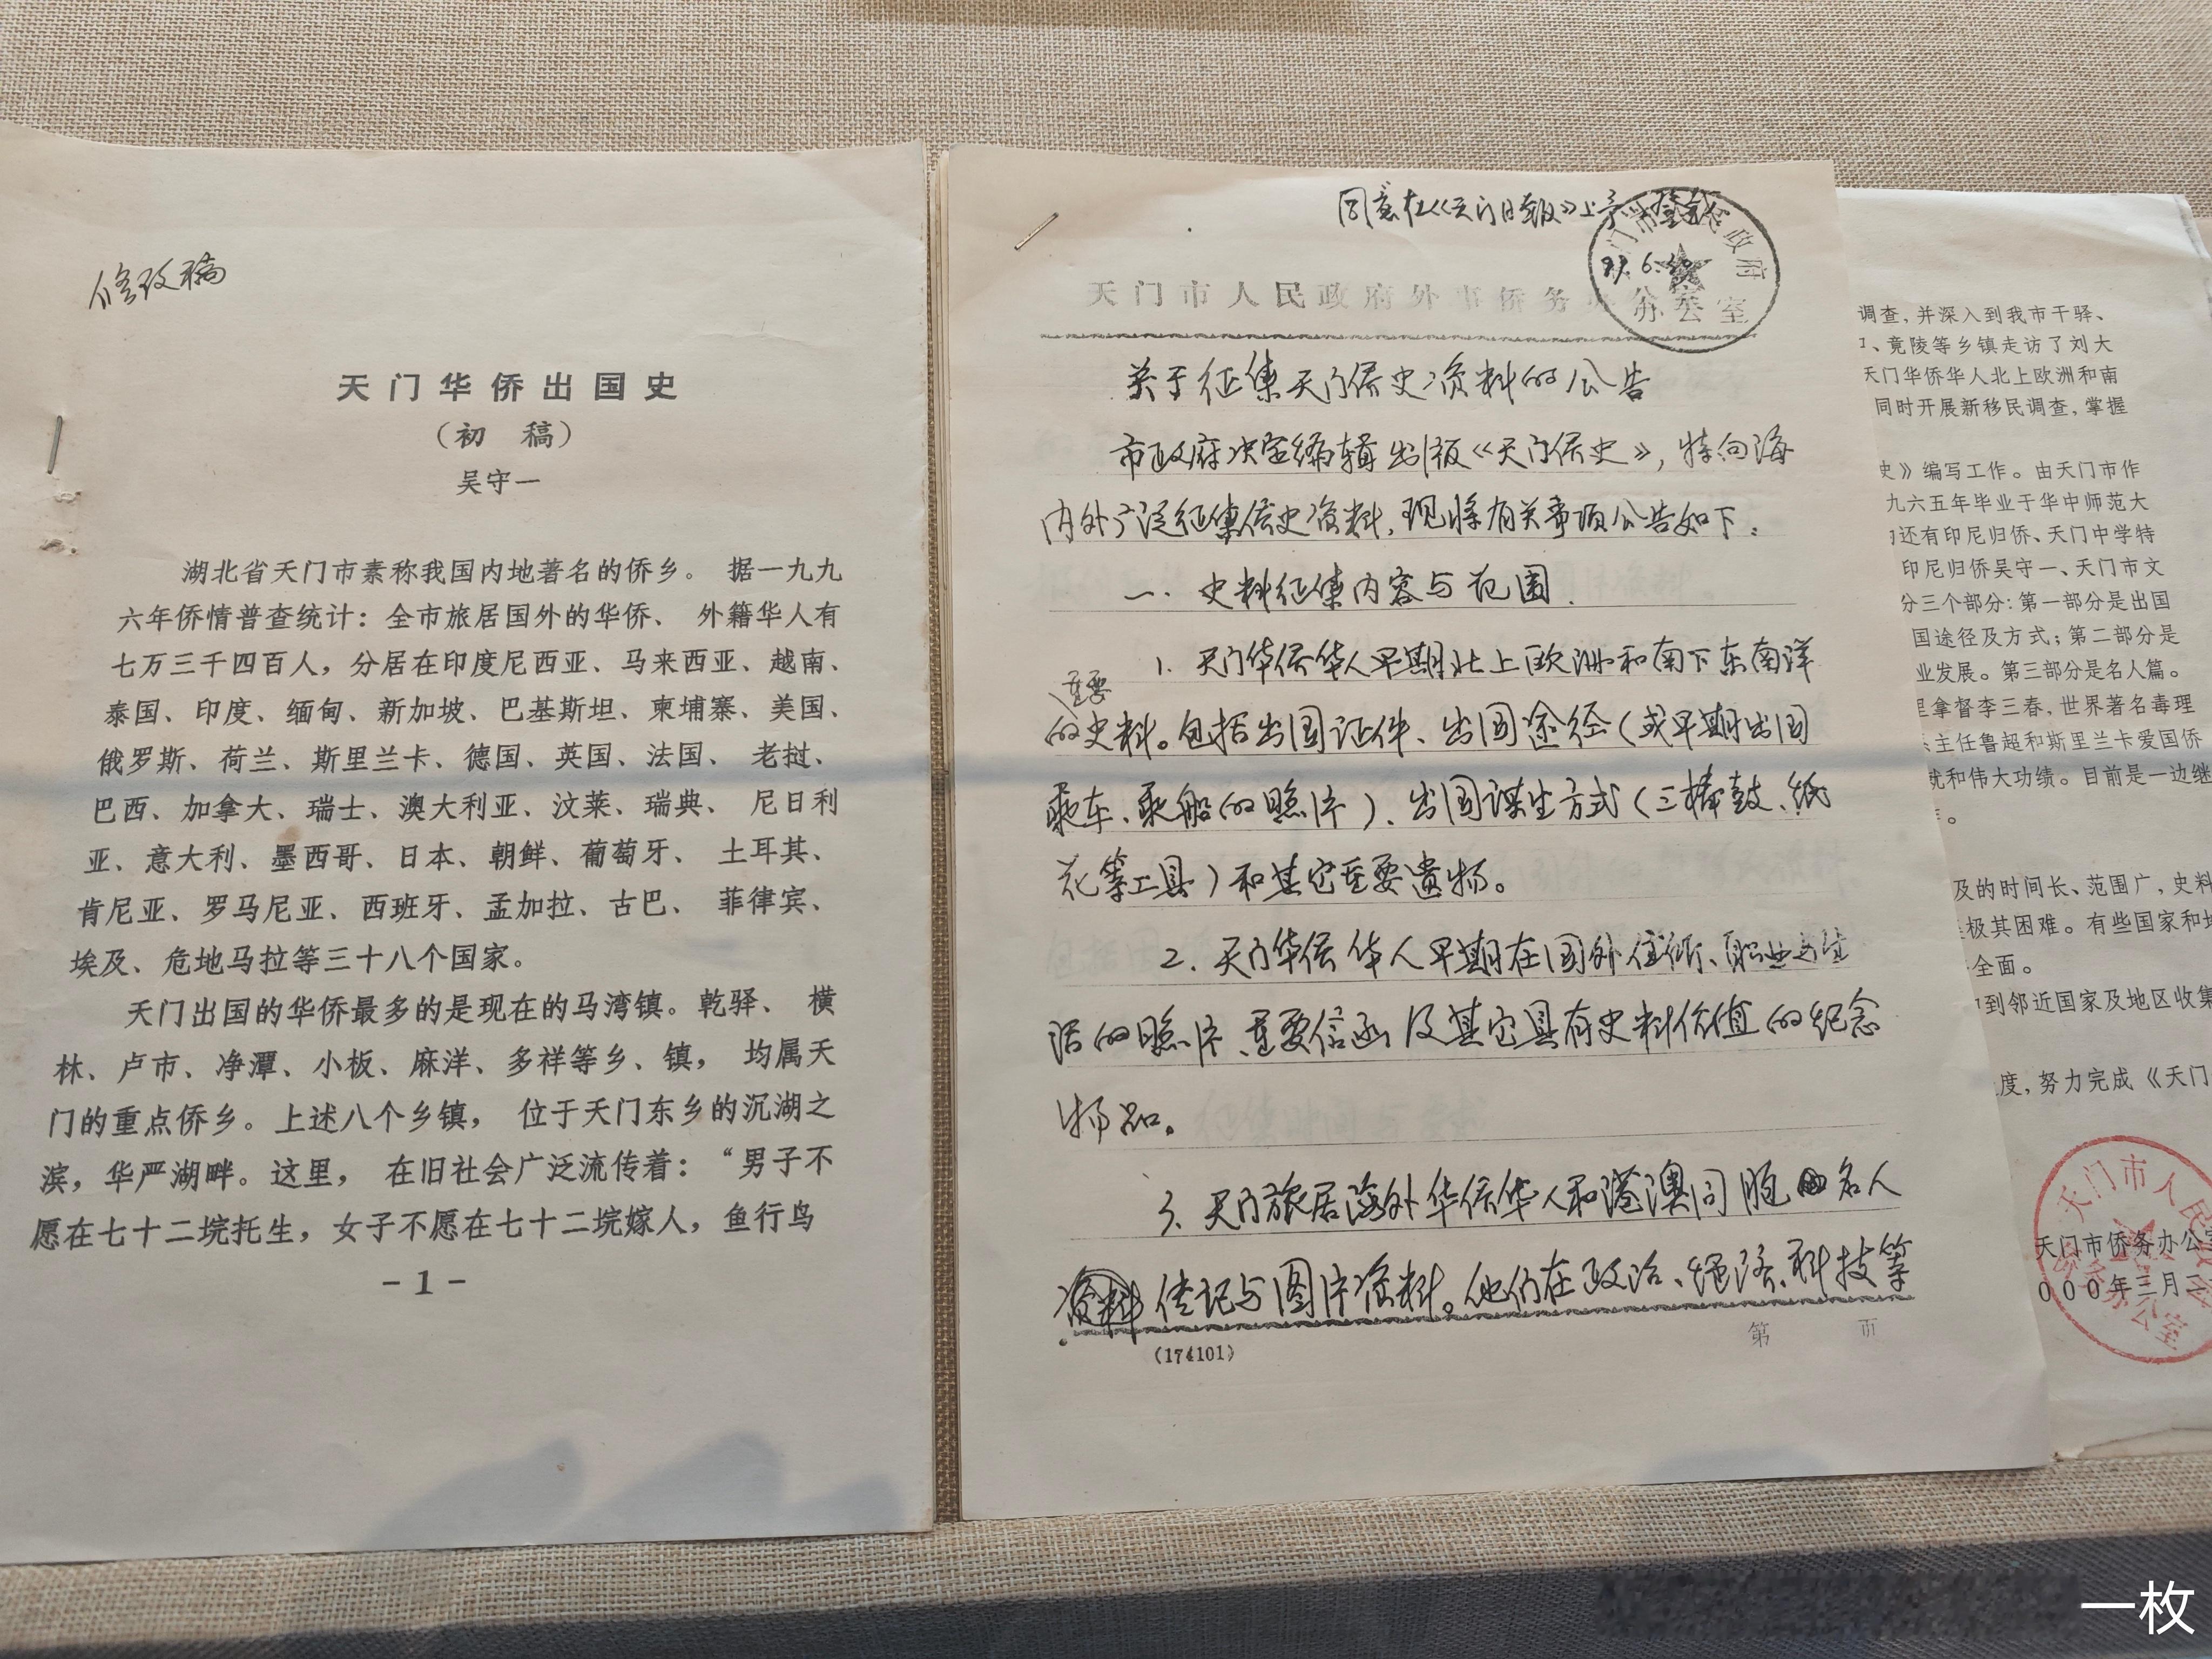 修改稿
天门华侨出国史
（初 稿）
吴守一
湖北省天门市素称我国内地著名的侨乡。据一九九
六年侨情普查统计：全市旅居国外的华侨、外籍华人有
七万三千四百人，分居在印度尼西亚、马来西亚、越南、
泰国、印度、缅甸、新加坡、巴基斯坦、柬埔寨、美国、
俄罗斯、荷兰、斯里兰卡、德国、英国、法国、老挝、
巴西、加拿大、瑞士、澳大利亚、汶莱、瑞典、尼日利
亚、意大利、墨西哥、日本、朝鲜、葡萄牙、土耳其、
肯尼亚、罗马尼亚、西班牙、孟加拉、古巴、菲律宾、
埃及、危地马拉等三十八个国家。
天门出国的华侨最多的是现在的马湾镇。乾驿、横
林、卢市、净潭、小板、麻洋、多祥等乡、镇，均属天
门的重点侨乡。上述八个乡镇，位于天门东乡的沉湖之
滨，华严湖畔。这里，在旧社会广泛流传着：“男子不
愿在七十二垸托生，女子不愿在七十二垸嫁人，鱼行鸟
-1-
同意在《天门日报》上予以登载
天门市人民政府外事侨务办公室
关于征集天门侨史资料的公告
市政府决定编辑出版《天门侨史》，特向海
内外广泛征集侨史资料，现将有关事项公告如下：
一、史料征集内容与范围
1、天门华侨华人早期北上欧洲和南下东南洋
重要
的史料。包括出国证件、出国途径（或早期出国
乘车、乘船的照片）、出国谋生方式（三棒鼓、纸
花等工具）和其它重要遗物。
2、天门华侨华人早期在国外住所、职业与生
活的照片、重要信函及其它具有史料价值的纪念
物品。
3、天门旅居海外华侨华人和港澳同胞名人
资料传记与图片资料。他们在政治、经济、科技等
(174101)
第 页
调查，并深入到我市干驿、
、竟陵等乡镇走访了刘大
天门华侨华人北上欧洲和南
同时开展新移民调查，掌握
史》编写工作。由天门市作
九六五年毕业于华中师范大
还有印尼归侨、天门中学特
印尼归侨吴守一、天门市文
分三个部分：第一部分是出国
国途径及方式；第二部分是
业发展。第三部分是名人篇。
里拿督李三春，世界著名毒理
主任鲁超和斯里兰卡爱国侨
就和伟大功绩。目前是一边继
。
及的时间长、范围广，史料
极其困难。有些国家和地
全面。
到邻近国家及地区收集
度，努力完成《天门
天门市侨务办公室
000年三月二
一枚